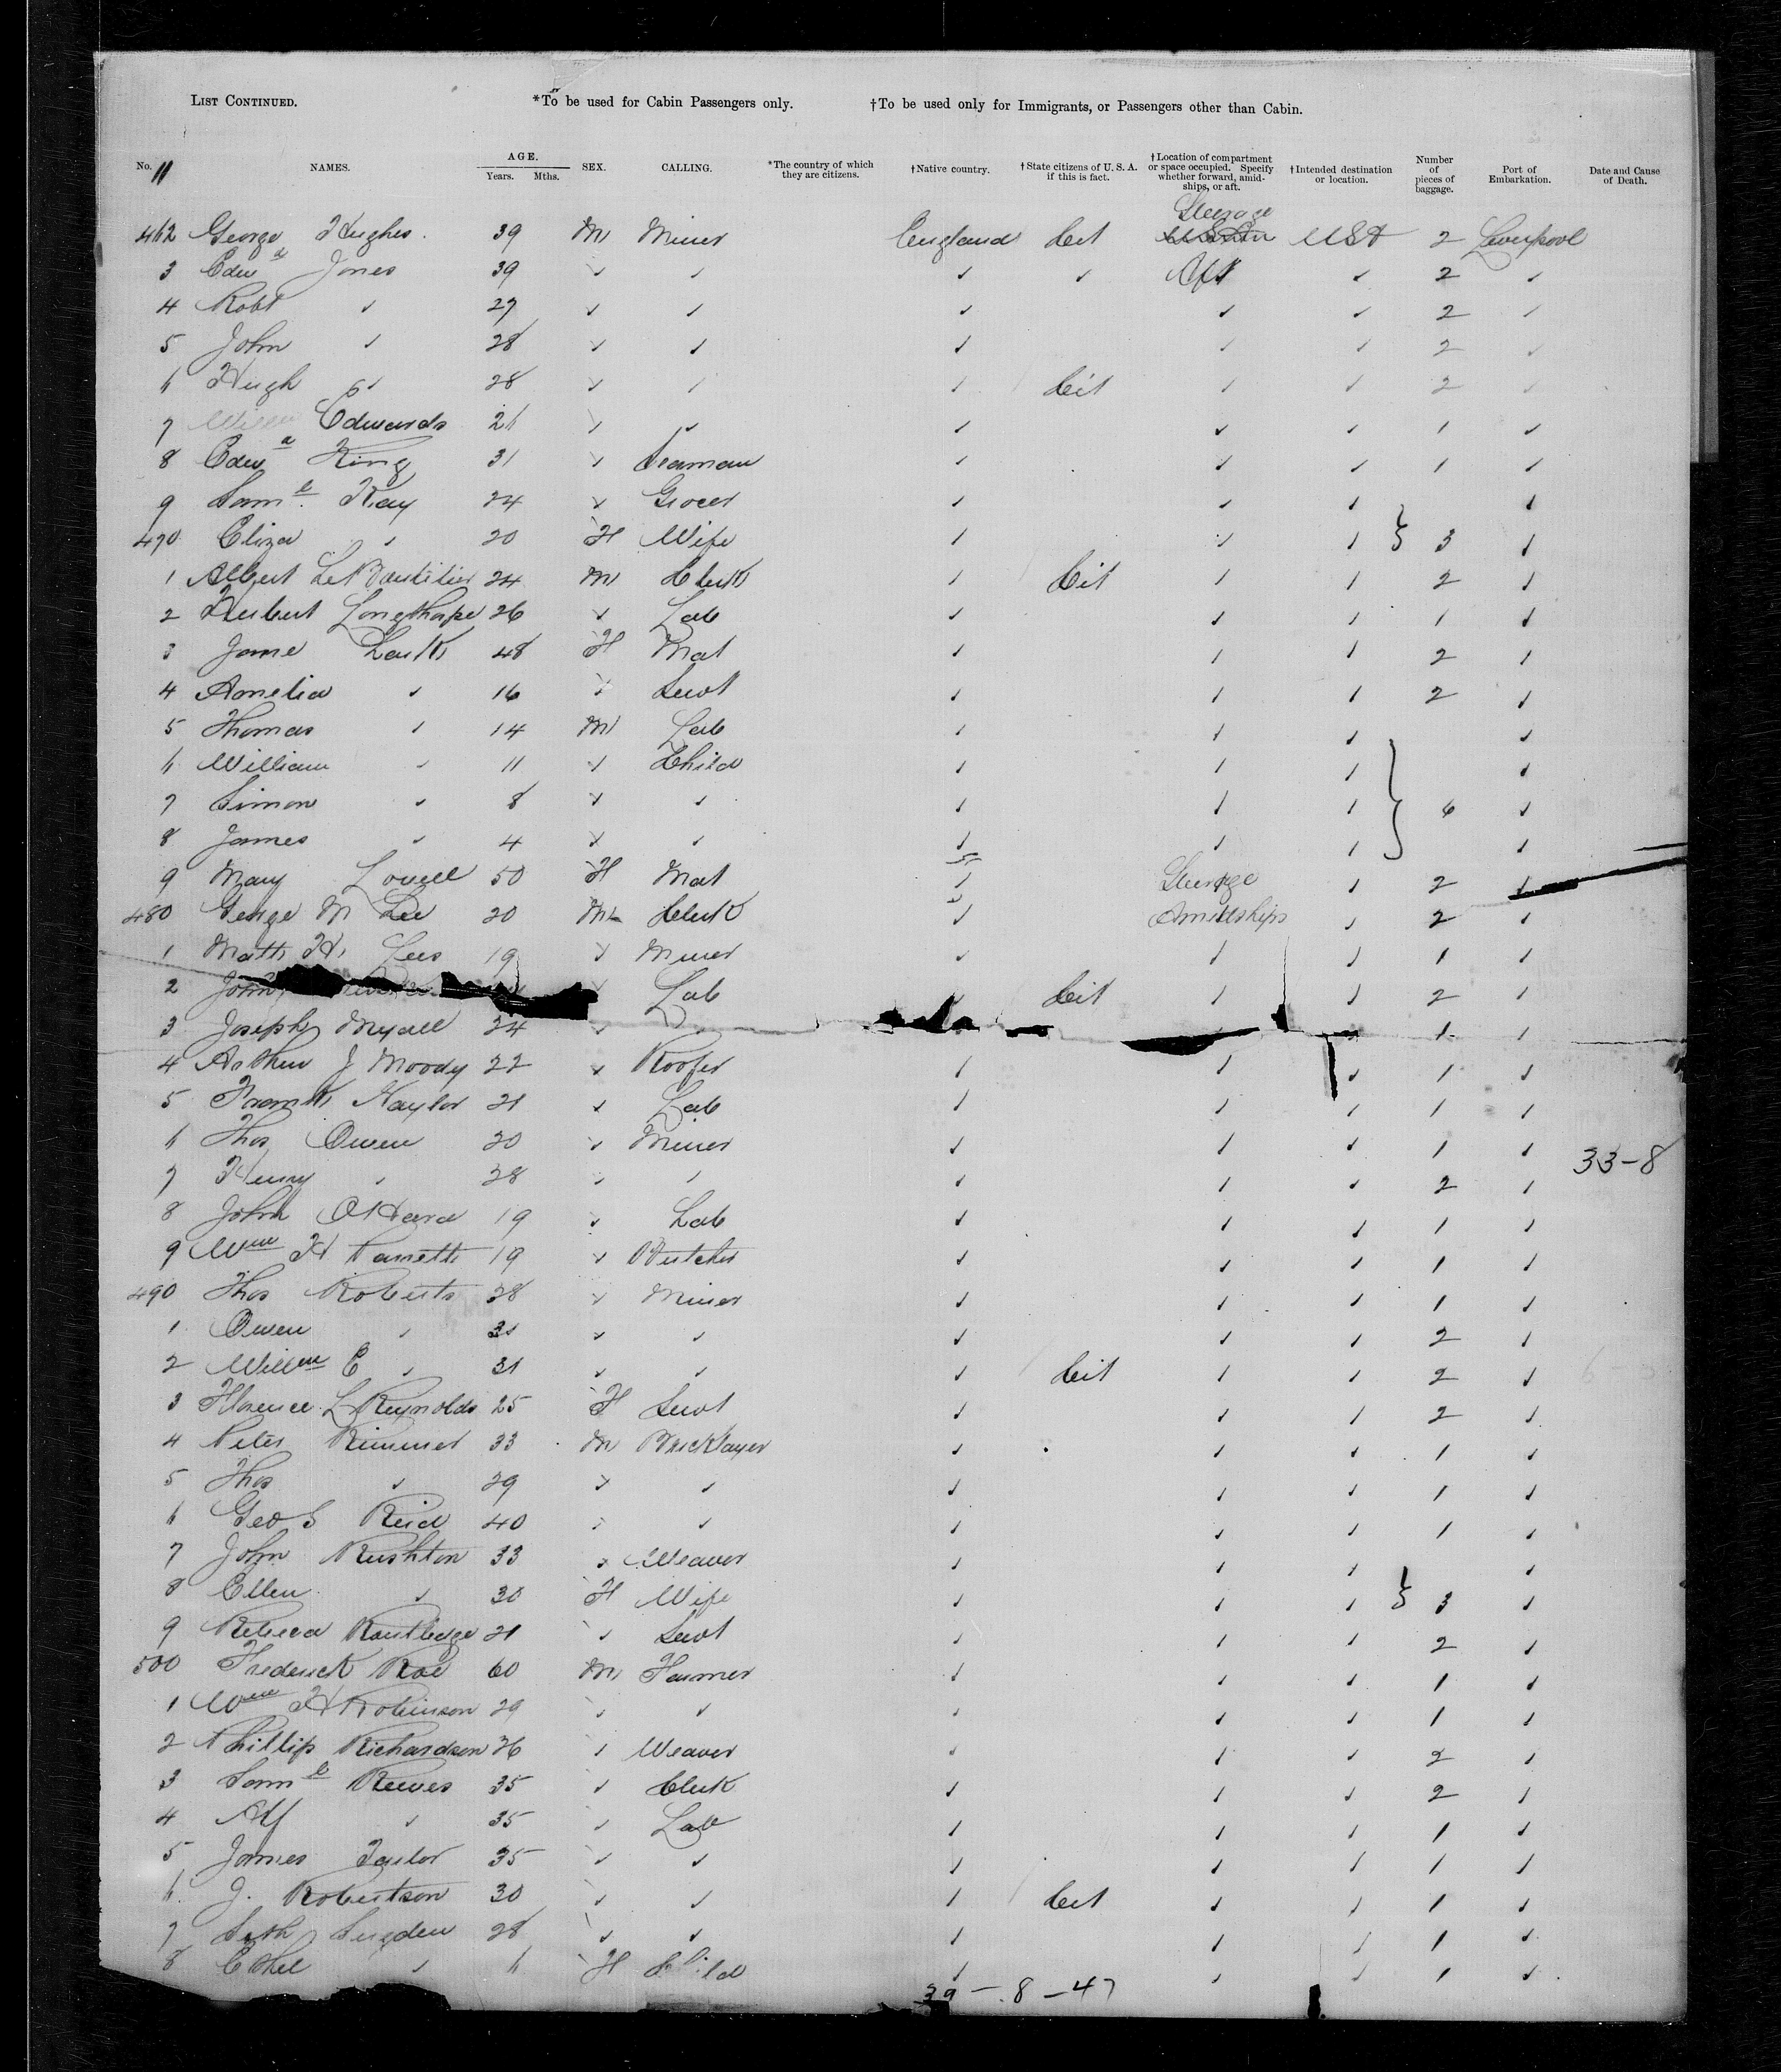 LIST CONTINUED. *To be used for Cabin Passengers only. †To be used only for Immigrants, or Passengers other than Cabin.
No. 11 NAMES. AGE. Years. Mths. SEX. CALLING. *The country of which they are citizens. †Native country. †State citizens of U. S. A. if this is fact. †Location of compartment or space occupied. Specify whether forward, amidships, or aft. †Intended destination or location. Number of pieces of baggage. Port of Embarkation. Date and Cause of Death.
462 George Hughes 39 M Miner England Cit Steerage USA 2 Liverpool
3 Edwd Jones 39 ✓ ✓ ✓ ✓ Aft ✓ 2 ✓
4 Robt ✓ 27 ✓ ✓ ✓ ✓ ✓ 2 ✓
5 John ✓ 28 ✓ ✓ ✓ ✓ ✓ 2 ✓
6 Hugh ✓ 28 ✓ ✓ ✓ Cit ✓ ✓ 2 ✓
7 Edwards 26 ✓ ✓ ✓ ✓ ✓ 1 ✓
8 Edwd King 31 ✓ Seaman ✓ ✓ ✓ 1 ✓
9 Saml. Kay 24 ✓ Grocer ✓ ✓ ✓ ✓
470 Eliza ✓ 20 F Wife ✓ ✓ ✓ 3 ✓
1 Albert Le Boutilier 24 M Clerk ✓ Cit ✓ ✓ 2 ✓
2 Herbert Longthorpe 26 ✓ Lab ✓ ✓ ✓ 1 ✓
3 Jane 48 F Mat ✓ ✓ ✓ 2 ✓
4 Amelia ✓ 16 ✓ Servt ✓ ✓ ✓ 2 ✓
5 Thomas ✓ 14 M Lab ✓ ✓ ✓ ✓
6 William ✓ 11 ✓ Child ✓ ✓ ✓ ✓
7 Simon ✓ 8 ✓ ✓ ✓ ✓ ✓ 6 ✓
8 James ✓ 4 ✓ ✓ ✓ ✓ ✓ ✓
9 Mary Lovell 50 F Mat ✓ Steerage ✓ 2 ✓
480 George M Lee 20 M Clerk ✓ Amidships ✓ 2 ✓
1 Matth H. Lees 19 ✓ Miner ✓ ✓ ✓ 1 ✓
2 John ✓ Lab ✓ Cit ✓ ✓ 2 ✓
3 Joseph Myall 24 ✓ ✓ 1 ✓
4 Arthur J Moody 22 ✓ Roofer ✓ ✓ ✓ 1 ✓
5 Frank Naylor 21 ✓ Lab ✓ ✓ ✓ 1 ✓
6 Thos Owen 20 ✓ Miner ✓ ✓ ✓ 1 ✓ 33-8
7 Henry ✓ 28 ✓ ✓ ✓ ✓ ✓ 2 ✓
8 John O'Hara 19 ✓ Lab ✓ ✓ ✓ 1 ✓
9 Wm H Parrett 19 ✓ Butcher ✓ ✓ ✓ 1 ✓
490 Thos Roberts 38 ✓ Miner ✓ ✓ ✓ 1 ✓
1 Owen ✓ 31 ✓ ✓ ✓ ✓ ✓ 2 ✓
2 Willm E ✓ 31 ✓ ✓ ✓ Cit ✓ ✓ 2 ✓
3 Florence L Reynolds 25 F Servt ✓ ✓ ✓ 2 ✓
4 Peter Rimmer 33 M Bricklayer ✓ ✓ ✓ 1 ✓
5 Thos ✓ 29 ✓ ✓ ✓ ✓ ✓ 1 ✓
6 Geo S Reid 40 ✓ ✓ ✓ ✓ ✓ 1 ✓
7 John Rushton 33 ✓ Weaver ✓ ✓ ✓ ✓
8 Ellen ✓ 30 F Wife ✓ ✓ ✓ 3 ✓
9 Rebecca Routledge 21 ✓ Servt ✓ ✓ ✓ 2 ✓
500 Frederick Roe 60 M Farmer ✓ ✓ ✓ 1 ✓
1 Wm H Robinson 29 ✓ ✓ ✓ ✓ ✓ 1 ✓
2 Phillip Richardson 26 ✓ Weaver ✓ ✓ ✓ 2 ✓
3 Saml Reeves 35 ✓ Clerk ✓ ✓ ✓ 2 ✓
4 Alf ✓ 35 ✓ Lab ✓ ✓ ✓ 1 ✓
5 James Taylor 35 ✓ ✓ ✓ ✓ ✓ 1 ✓
6 J. Robertson 30 ✓ ✓ ✓ Cit ✓ ✓ 1 ✓
7 Seth Sugden 28 ✓ ✓ ✓ ✓ ✓ 1 ✓
8 Ethel ✓ 6 F Child ✓ ✓ ✓ 1 ✓
39 - 8 - 47